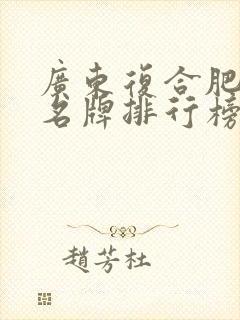 廣東復合肥
名牌排行榜
趙芳杜